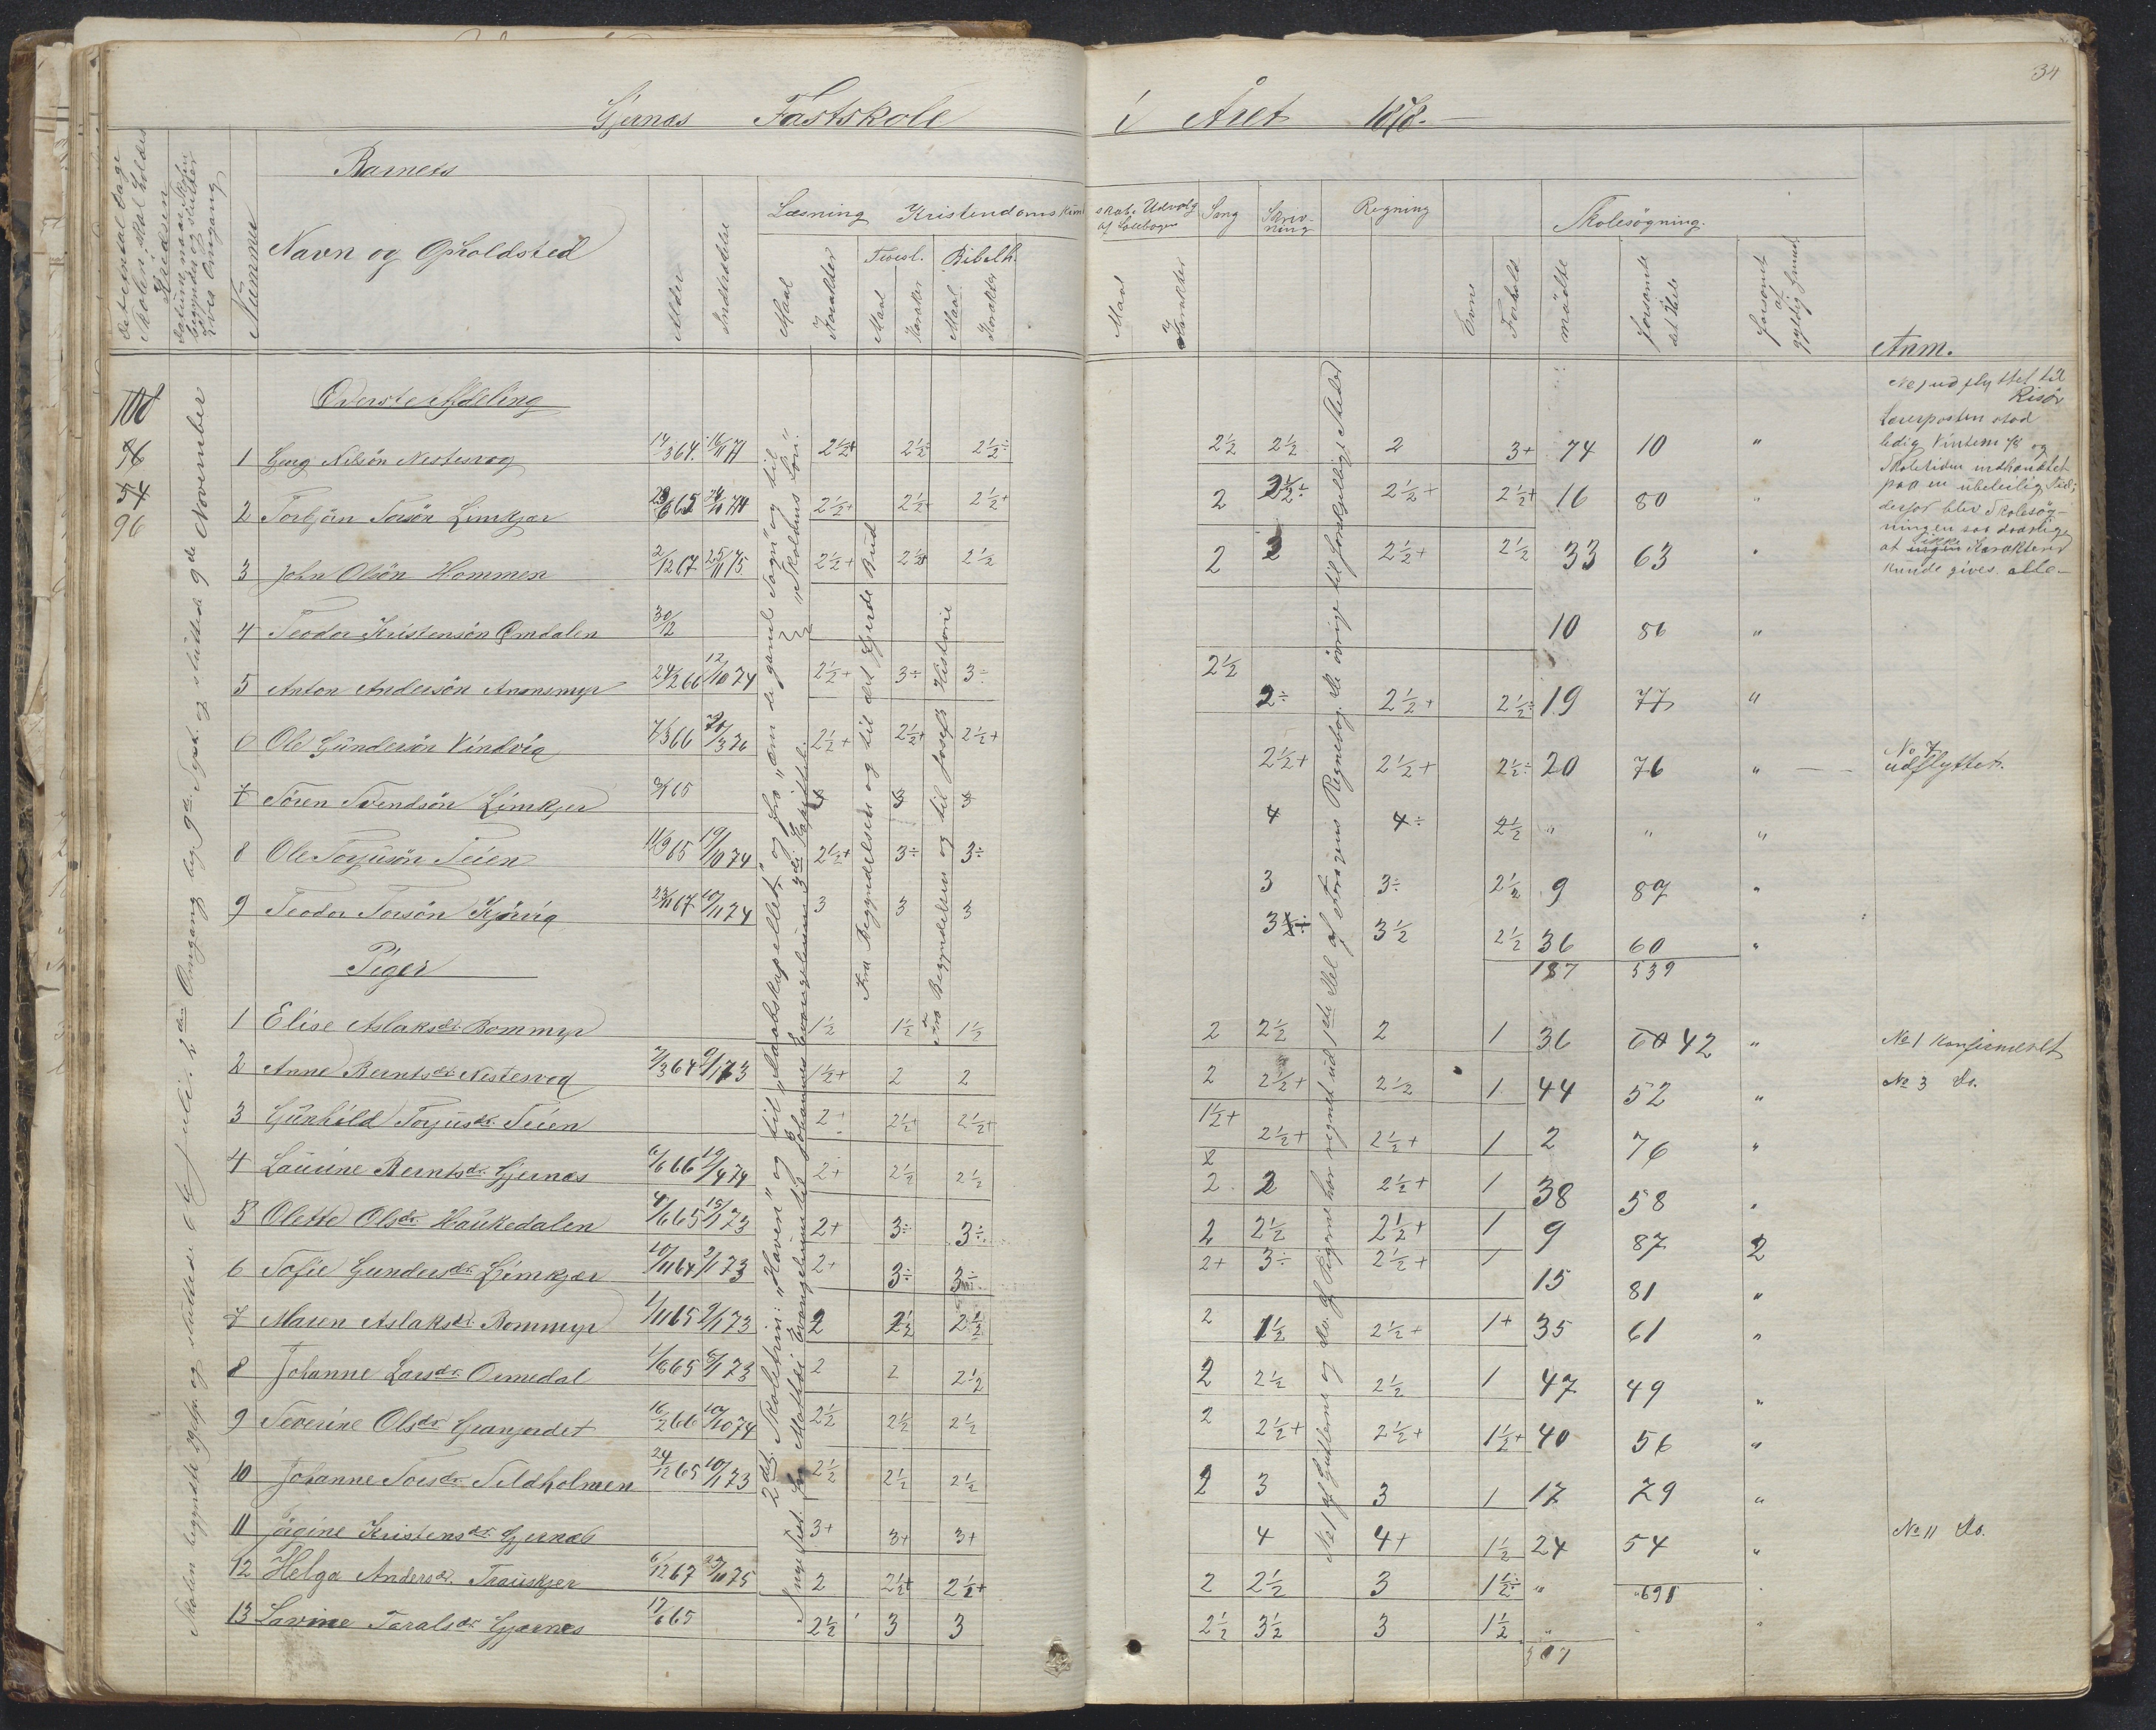 34
Gjernæs Fastskole i Året 1878.
Barnets
Det ental Dage Skolen skal holdes i Kredsen
Datum, naar Skolen begynder og slutter hver Omgang
Nummer
Navn og Opholdsted
Alder
Indtrædelse
Læsning
Kristendomskundskab. Udvalg af Læsebogen
Maal
Karakter
Troesl.
Maal
Karakter
Bibelh.
Maal
Karakter
Maal
Karakter
Sang
Skrivning
Regning
Evne
Forhold
Skolesøgning.
mødte
forsømte det Hele
forsømt af gyldig Grund
Anm.
Øverste Afdeling
108
96
54
96
1 Georg Nilsön Nestesvog 14/3 64. 16/11 71 2½+ 2½÷ 2½÷ 2½ 2½ 2 3+ 74 10 "
2 Torbjörn Torsön Limkjær 2½+ 2½+ 2½+ 2 2½÷ 2½+ 2½+ 16 80 "
3 John Olsön Hommen 2/12 67 25/11 75 2½+ 2½+ 2½ 2 3 2½+ 2½ 33 63 "
4 Teodor Kristensön Omdalen 30/12 10 86 "
5 Anton Andersön Anonsmyr 24/2 66 12/10 74 2½+ 3÷ 3÷ 2½ 2÷ 2½+ 2½÷ 19 77 "
6 Ole Gundersön Vindvig 7/3 66 2½+ 2½+ 2½+ 2½+ 2½+ 2½÷ 20 76 "
7 Sören Svendsön Limkjer 4 4÷ 2½ " " "
8 Ole Torjusön Teien 11/9 65 19/10 74 2½+ 3÷ 3÷ 3 3÷ 2½ 9 87 "
9 Teodor Torsön Kjörvig 23/11 67 10/11 74 3 3 3 3½÷ 3½ 2½ 36 60 "
187 539
Piger
1 Elise Aslaksdr. Rommyr 1½ 1½ 1½ 2 2½ 2 1 36 60 42 "
2 Anne Berntsdr. Nestesvog 7/3 64 9/1 73 1½+ 2 2 2 2½+ 2½ 1 44 52 "
3 Gunhild Torjusdr. Teien 2+ 2½+ 2½+ 1½+ 2½+ 2½+ 1 2 76 "
4 Laurine Berntsdr. Gjernæs 6/6 66 19/4 74 2+ 2½ 2½ 2 2 2½+ 1 38 58 "
5 Olette Olsdr. Haukedalen 4/6 65 15/1 73 2+ 3÷ 3÷ 2 2½ 2½+ 1 9 87 2
6 Sofie Gundersdr. Limkjær 10/11 64 9/1 73 2+ 3÷ 3÷ 2+ 3÷ 2½+ 1 15 81 "
7 Maren Aslaksdr. Rommyr 1/11 65 9/1 73 2 2½ 2½ 2 1½ 2½+ 1+ 35 61 "
8 Johanne Larsdr. Ormdal 2 2 2½ 2 2½ 2½ 1 47 49 "
9 Severine Olsdr. Granjordet 16/2 66 10/10 74 2½ 2½ 2½ 2 2½+ 2½+ 1½+ 40 56 "
10 Johanne Torsdr. Sildholmen 24/12 65 10/1 73 2½ 2½ 2½ 2 3 3 1 17 79 "
11 Jörgine Kristensdr. Gjernæs 3+ 3+ 3+ 4 4+ 1½ 24 54 "
12 Helga Andersdr. Trauskjer 6/12 67 2 2½+ 2½+ 2 2½ 3 1½÷ " "
691
13 Lavine Taralsdr. Gjærnes 17/6 65 2½ 3 3 2½ 3½ 3 1½ "
307
Skolen begyndte og sluttede Juli. 2den Omgang beg. 9de Sept. og sluttede 9de November
2det Skoletrin: "Haven" og til "Naobskapellet", og fra "om de gamle Sagn" og til "Skoldens Søn."
Nye Test. fra Matthæi Evangelium til Johannes Evangelium 3die Kapittel.
Fra Begyndelsen og til det fjerde Bud
Fra Begyndelsen og til Josefs Historie
No 1 af Gutterne og do. af Pigerne har regnet ud 1ste Del af Foragens Regnebog. De övrige til forskjellige Steder
No 1 udflyttet til Risör
Lærerposten stod ledig Vinteren 78 og Skoletiden indhentedes paa en ubeleilig Tid; derfor blev Skolesøgningen saa daarlig, at ikke Karakterer kunde gives alle.
No 7 udflyttet.
No 1 Konfirmeret
No 3 do.
No 11 do.